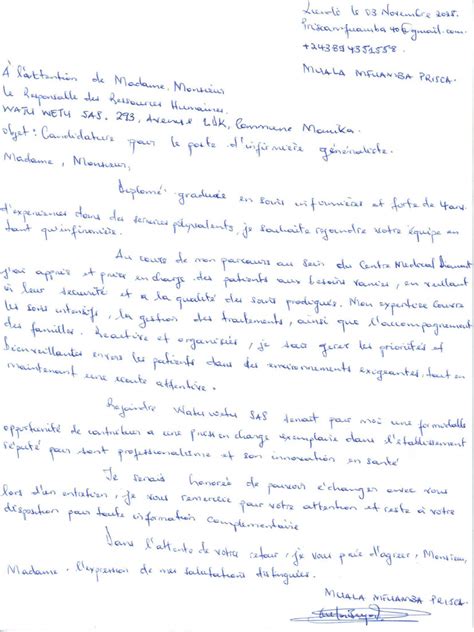 Lundi le 03 Novembre 2025.
Priscamfuamba40@gmail.com.
MUALA MFUAMBA PRISCA.
À l'attention de Madame, Monsieur
Le Responsable des Ressources Humaines.
WATU WETU SAS. 293, Avenue LDK, Commune Manika.
Objet : Candidature pour le poste d'infirmière généraliste.
Madame, Monsieur,
Diplomé graduée en soins infirmières et forte de 4ans
d'experiences dans des services polyvalents, je souhaite rejoindre votre équipe en
tant qu'infirmière.
Au cours de mon parcours au sein du Centre Medical
j'ai appris et prise en charge des patients aux besoins variés, en veillant
à leur securité et a la qualité des soins prodigués. Mon expertise couvre
les soins intensifs, la gestion des traitements, ainsi que l'accompagnement
des familles. Reactive et organisée, je sais gerer les priorités et
bienveillantes envers les patients dans des environnements exigeants, tout en
maintenant une ecoute attentive.
Rejoindre Watu wetu SAS serait par moi une formidable
opportunité de contribuer a une prise en charge exemplaire dans l'etablissement
réputé pour sont professionalisme et son innovation en santé
Je serais honorée de pouvoir échanger avec vous
lors d'un entretien, je vous remercie pour votre attention et reste à votre
disposition pour toute information complementaire
Dans l'attente de votre retour, je vous prie d'agreer, Monsieur,
Madame. l'expression de mes salutations distinguées.
MUALA MFUAMBA PRISCA.